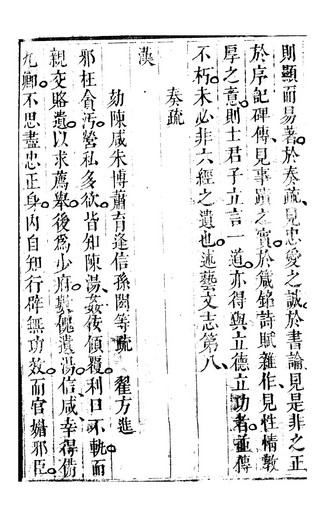 則顯而易著於奏疏見忠愛之誠於書論見是非之正
於序記碑傳見事蹟之實於箴銘詩賦雜作見性情敦
厚之意則士君子立言一道亦得與立德立功者並傳
不朽未必非六經之遺也述藝文志第八
奏疏
漢
劾陳咸朱博蕭育逢信孫閎等疏 翟方進
邪枉貪汚營私多欲皆知陳湯姦佞傾覆利口不軌而
親交賂遺以求薦舉後爲少府數餽遺湯信咸幸得備
九卿不思盡忠正身內自知行辟無功效而官媚邪臣